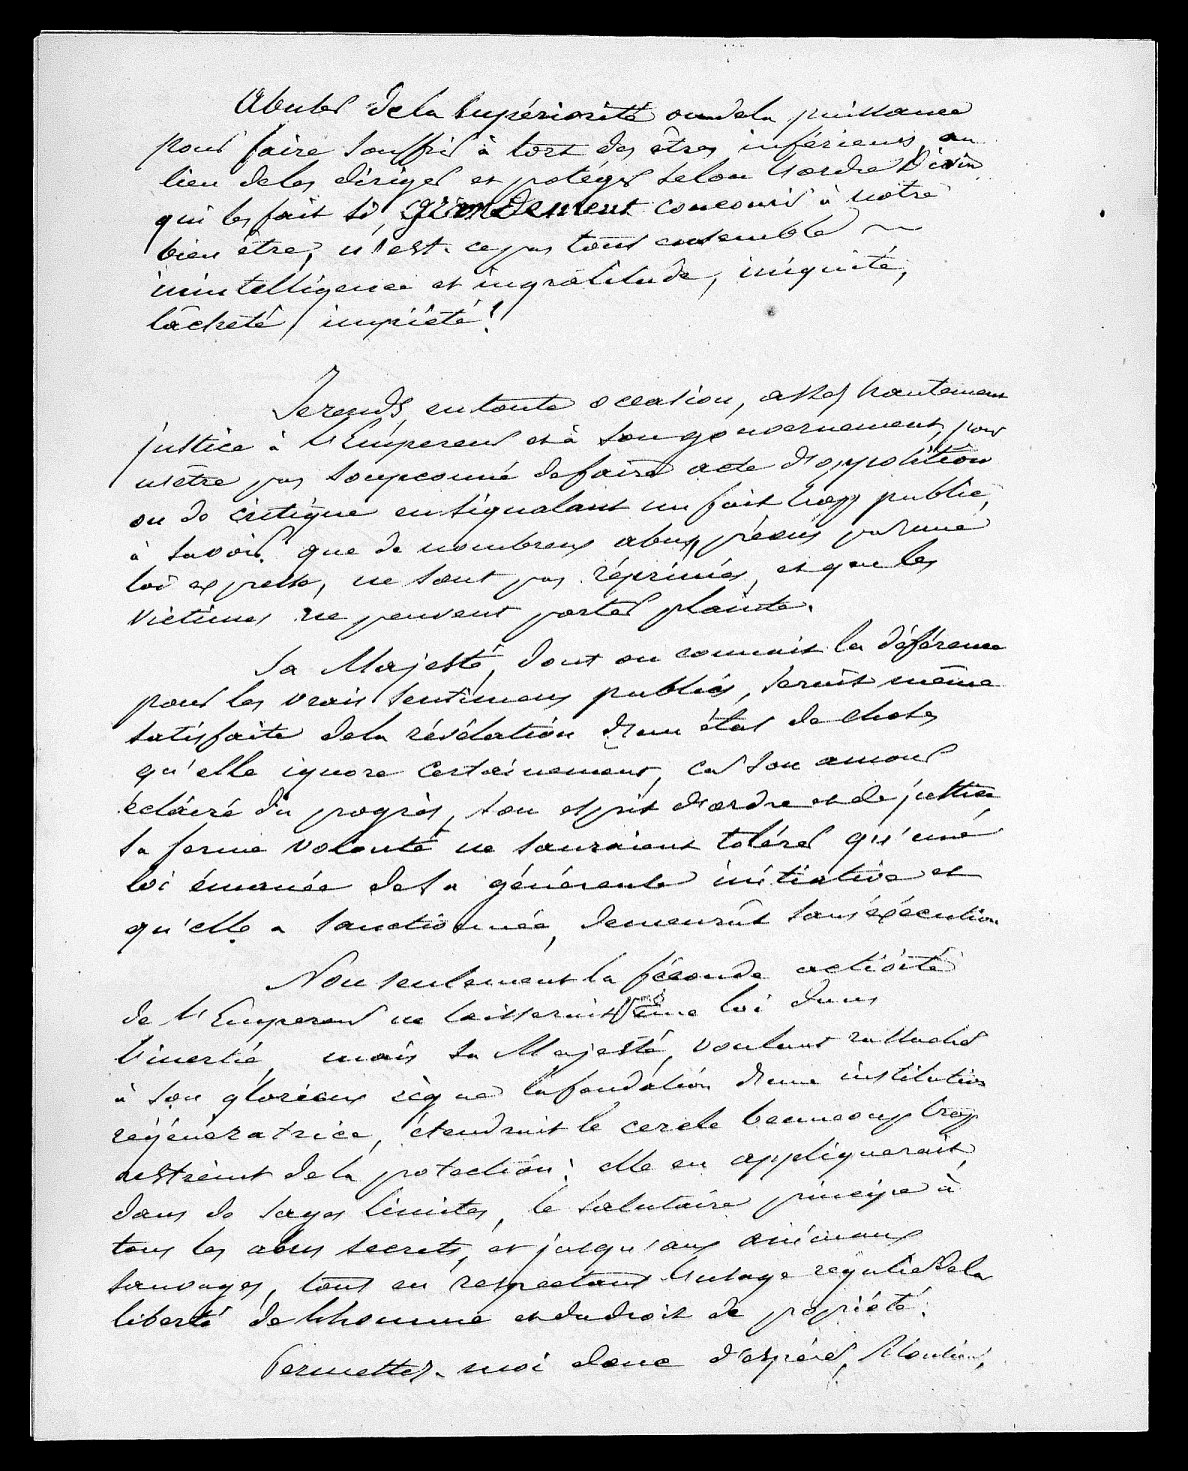 Abuser de la supériorité ou de la puissance
pour faire souffrir à tort des êtres inférieurs, au
lieu de les diriger et protéger selon l'ordre Divin
qui les fait si grandement concourir à notre
bien être, n'est-ce pas tout ensemble
inintelligence et ingratitude, iniquité,
lâcheté, impiété!
Je rends, en toute occasion, assez hautement
justice à l'Empereur et à son gouvernement, pour
n'être pas soupçonné de faire acte d'opposition
ou de critique en signalant un fait trop public,
à savoir: que de nombreux abus, prévus par une
loi expresse, ne sont pas réprimés, et que les
victimes ne peuvent porter plainte.
Sa Majesté, dont on connait la déférence
pour les vrais sentimens publics, serait même
satisfaite de la révélation d'un état de choses
qu'elle ignore certainement, car son amour
éclairé du progrès, son esprit d'ordre et de justice,
sa ferme volonté ne sauraient tolérer qu'une
loi émanée de sa généreuse initiative et
qu'elle a sanctionnée, demeurât sans exécution
Non seulement la féconde activité
de l'Empereur ne laisserait pas une loi dans
l'inertie, mais Sa Majesté, voulant rattacher
à son glorieux règne la fondation d'une institution
régénératrice, étendrait le cercle beaucoup trop
restreint de la protection: elle en appliquerait,
dans de sages limites, le salutaire principe à
tous les abus secrets, et jusqu'aux animaux
sauvages, tout en respectant l'usage régulier de la
liberté de l'homme et du droit de propriété.
Permettez-moi donc d'espérer, Monsieur,